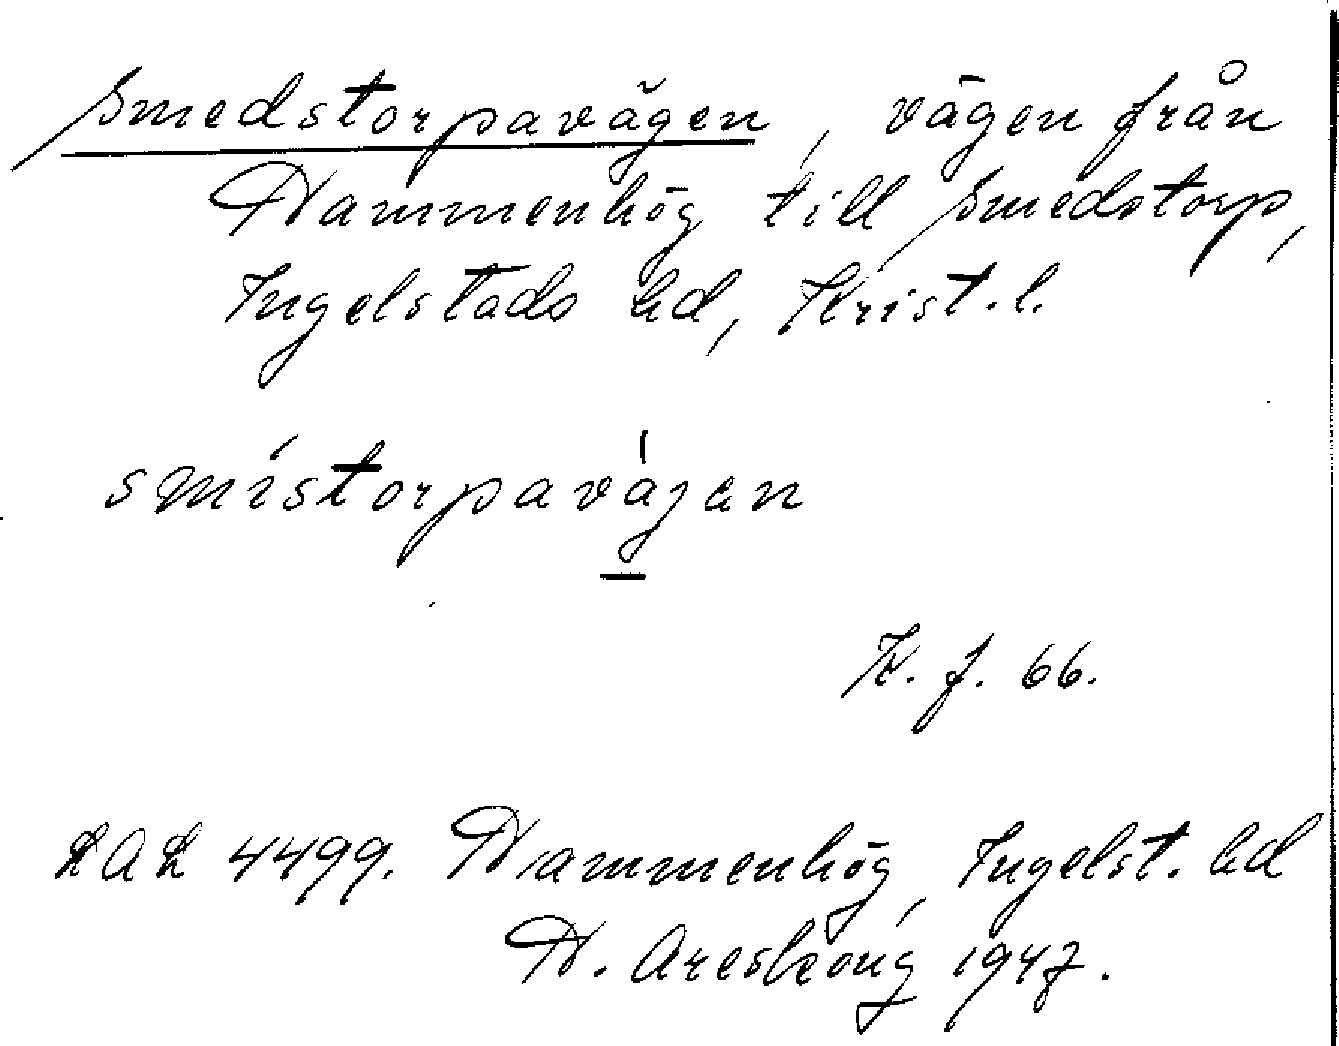 Smedstorpavägen, vägen från
Hammenhög till Smedstorp,
Ingelstads hd, Krist. l.
smistorpavä́jen
K. J. 66.
LAL 4499. Hammenhög, Ingelst. hd
H. Areskoug 1947.